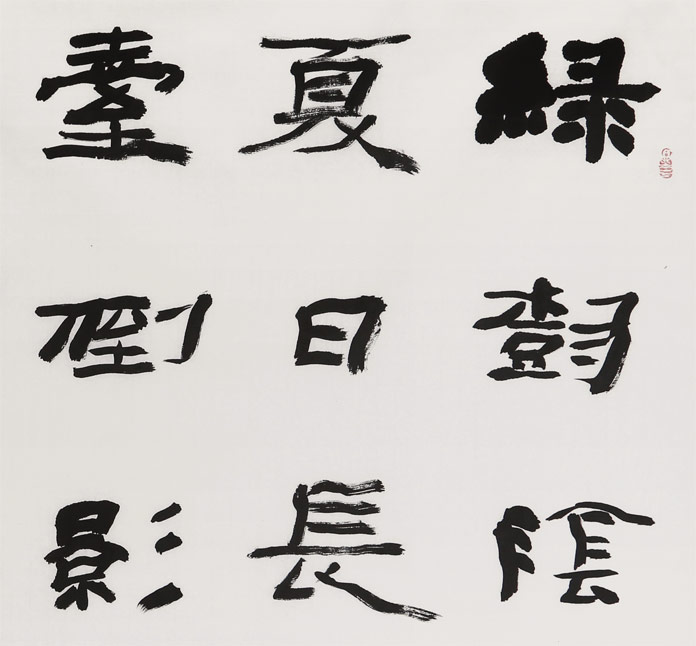 綠樹陰
夏日長
臺倒影